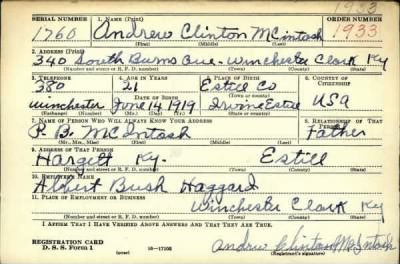 1933
SERIAL NUMBER 1. NAME (Print) ORDER NUMBER
1760 Andrew Clinton McIntosh 1933
(First) (Middle) (Last)
2. ADDRESS (Print)
340 South Burns Ave - Winchester Clark Ky
(Number and street or R. F. D. number) (Town) (County) (State)
3. TELEPHONE 4. AGE IN YEARS 5. PLACE OF BIRTH 6. COUNTRY OF CITIZENSHIP
380 21 Estill Co
DATE OF BIRTH (Town or county)
Winchester June 14 1919 Irvine Estill USA
(Exchange) (Number) (Mo.) (Day) (Yr.) (State or country)
7. NAME OF PERSON WHO WILL ALWAYS KNOW YOUR ADDRESS 8. RELATIONSHIP OF THAT PERSON
P. B. McIntosh Father
(Mr., Mrs., Miss) (First) (Middle) (Last)
9. ADDRESS OF THAT PERSON
Hargett Ky. Estill
(Number and street or R. F. D. number) (Town) (County) (State)
10. EMPLOYER'S NAME
Albert Bush Haggard
11. PLACE OF EMPLOYMENT OR BUSINESS
Winchester Clark Ky
(Number and street or R. F. D. number) (Town) (County) (State)
I AFFIRM THAT I HAVE VERIFIED ABOVE ANSWERS AND THAT THEY ARE TRUE.
REGISTRATION CARD
D. S. S. Form 1 (over) 16—17105 Andrew Clinton McIntosh
(Registrant's signature)